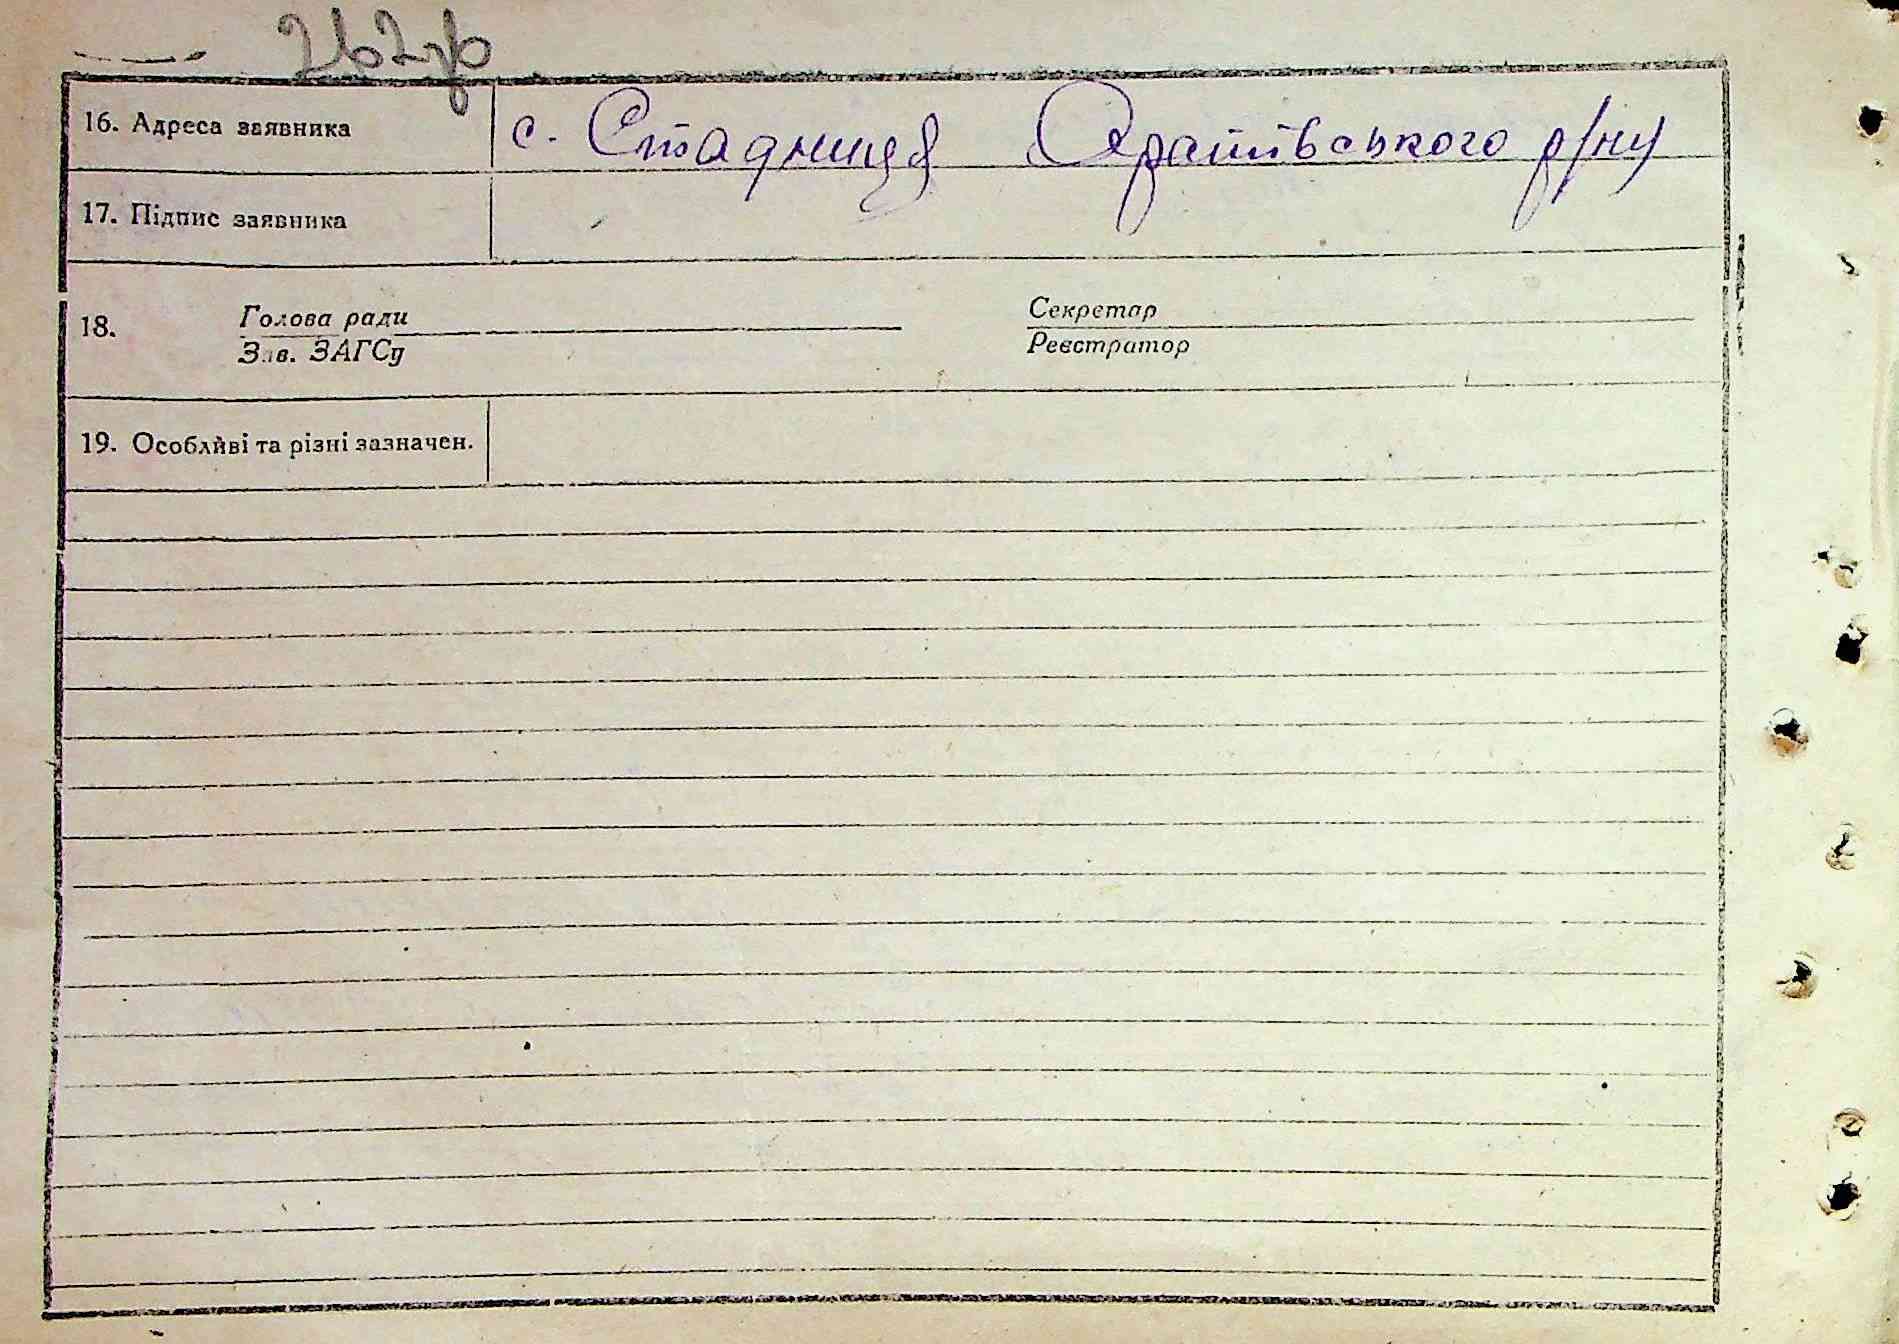 262зв
16. Адреса заявника с. Стадниця Оратівського р/ну
17. Підпис заявника
18. Голова ради Секретар
Зав. ЗАГСу Реєстратор
19. Особливі та різні зазначен.